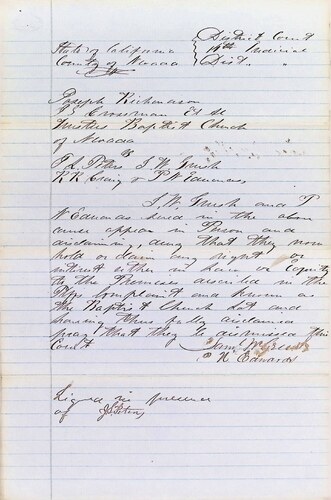 State of California } District Court
County of Nevada } 14th Judicial
Dist.
Joseph Richardson
Crossman Et al
Trustees Baptist Church
of Nevada
vs
J. W. Gush
R K Craig & P W Edwards
J. W. Gush and P
W Edwards sued in the above
cause appear in Person and
disclaiming deny that they now
hold or claim any right or
interest either in Law or equity
to the Premises described in the
Plffs Complaint and known as
the Baptist Church Lot and
having thus fully disclaimed
pray that they be dismissed this
Court
Edwards
Signed in presence
of